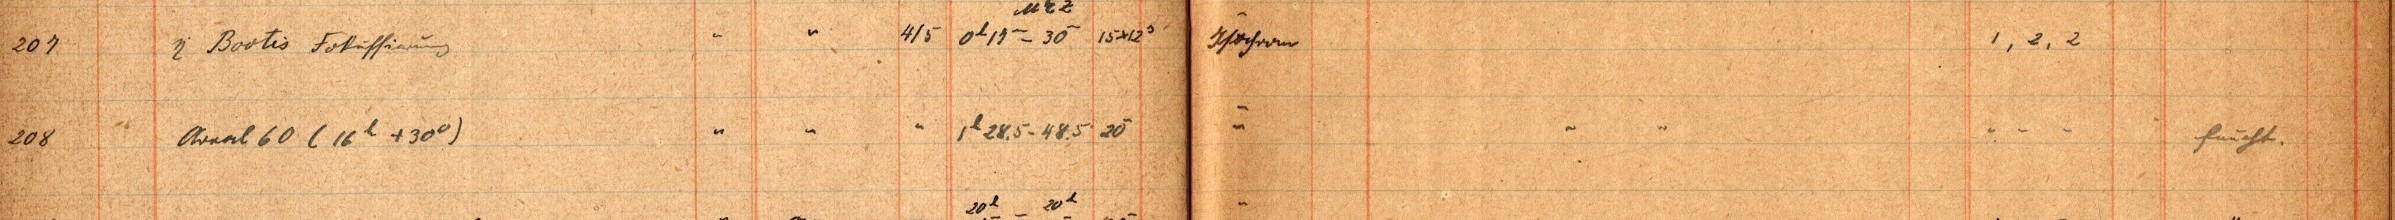 MEZ
207 η Bootis Fokussierung " " 4/5 0h 15m - 30m 15×12s Isochrom 1, 2, 2
208 Areal 60 (16h +30°) " " " 1h 28.5 - 48.5 20m " " " " " " feucht.
20h 20h "